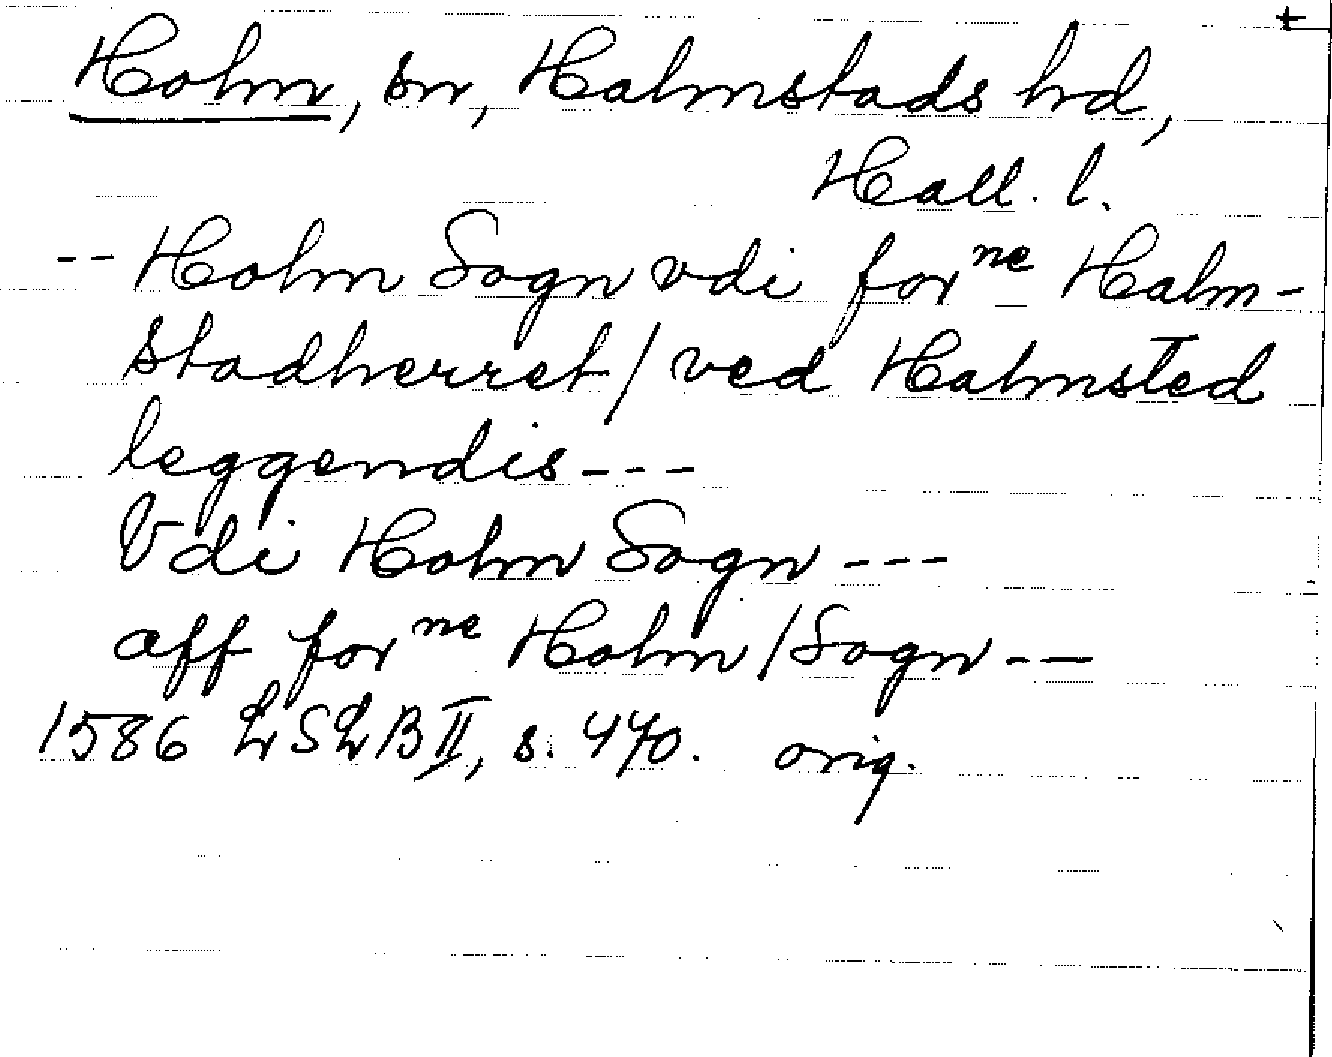 +
Holm, sn, Halmstads hd,
Hall. l.
-- Holm Sogn vdi for^ne Halm-
stadherret/ ved Halmsted
leggendis ---
Vdi Holm Sogn ---
aff for^ne Holm/Sogn --
1586 LSLB II, s. 470. orig.